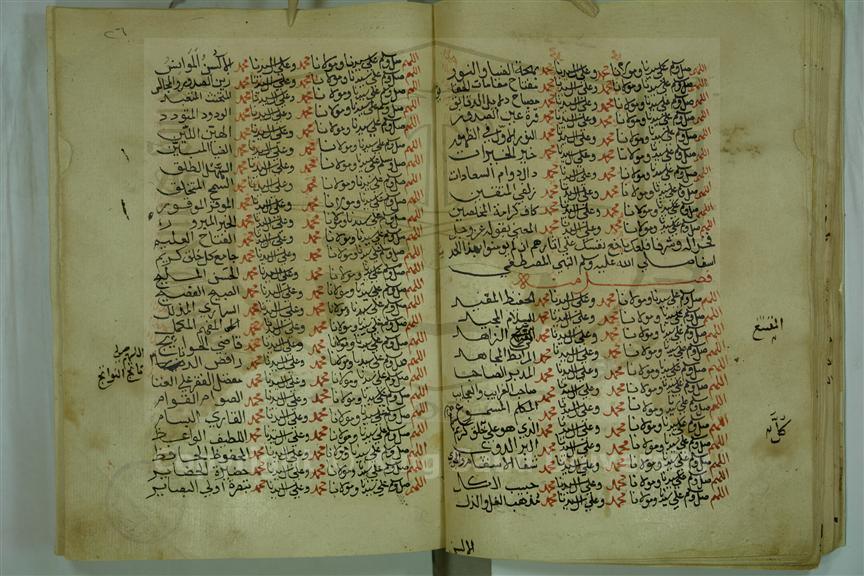 اللهم صل وسلم على سيدنا ومولانا محمد وعلى آل سيدنا محمد بهجة الضياء والنور
اللهم صل وسلم على سيدنا ومولانا محمد وعلى آل سيدنا محمد مفتاح مقامات
اللهم صل وسلم على سيدنا ومولانا محمد وعلى آل سيدنا محمد مصباح دلايل الدقائق
اللهم صل وسلم على سيدنا ومولانا محمد وعلى آل سيدنا محمد قرة عين الصدور
اللهم صل وسلم على سيدنا ومولانا محمد وعلى آل سيدنا محمد النور الاول في الظهور
اللهم صل وسلم على سيدنا ومولانا محمد وعلى آل سيدنا محمد خير الخيرات
اللهم صل وسلم على سيدنا ومولانا محمد وعلى آل سيدنا محمد دال دوام السعادات
اللهم صل وسلم على سيدنا ومولانا محمد وعلى آل سيدنا محمد المتقين
اللهم صل وسلم على سيدنا ومولانا محمد وعلى آل سيدنا محمد كاف كرامة المخلصين
اللهم صل وسلم على سيدنا ومولانا محمد وعلى آل سيدنا محمد المعني بقوله عز وجل
فلعلك باخع نفسك على اثارهم ان لم يومنوا بهذا الحديث
اسفا صلى الله عليه وسلم النبي المصطفى
فصل منه
اللهم صل وسلم على سيدنا ومولانا محمد وعلى آل سيدنا محمد الحفيظ المقيد
اللهم صل وسلم على سيدنا ومولانا محمد وعلى آل سيدنا محمد
اللهم صل وسلم على سيدنا ومولانا محمد وعلى آل سيدنا محمد الزاهد
اللهم صل وسلم على سيدنا ومولانا محمد وعلى آل سيدنا محمد المرابط المجاهد
اللهم صل وسلم على سيدنا ومولانا محمد وعلى آل سيدنا محمد
اللهم صل وسلم على سيدنا ومولانا محمد وعلى آل سيدنا محمد صاحب الغرايب والعجايب
اللهم صل وسلم على سيدنا ومولانا محمد وعلى آل سيدنا محمد المسموع
اللهم صل وسلم على سيدنا ومولانا محمد وعلى آل سيدنا محمد الذي هو على خلق كريم
اللهم صل وسلم على سيدنا ومولانا محمد وعلى آل سيدنا محمد البر الروف
اللهم صل وسلم على سيدنا ومولانا محمد وعلى آل سيدنا محمد
اللهم صل وسلم على سيدنا ومولانا محمد وعلى آل سيدنا محمد حبيب الكل
اللهم صل وسلم على سيدنا ومولانا محمد وعلى آل سيدنا محمد مذهب الغل والذل
٢٦
اللهم صل وسلم على سيدنا ومولانا محمد وعلى آل سيدنا محمد الاكسن المؤانس
اللهم صل وسلم على سيدنا ومولانا محمد وعلى آل سيدنا محمد زين الصدور والمجالس
اللهم صل وسلم على سيدنا ومولانا محمد وعلى آل سيدنا محمد المتعبد
اللهم صل وسلم على سيدنا ومولانا محمد وعلى آل سيدنا محمد الودود المتودد
اللهم صل وسلم على سيدنا ومولانا محمد وعلى آل سيدنا محمد الهين اللين
اللهم صل وسلم على سيدنا ومولانا محمد وعلى آل سيدنا محمد
اللهم صل وسلم على سيدنا ومولانا محمد وعلى آل سيدنا محمد السهل الطلق
اللهم صل وسلم على سيدنا ومولانا محمد وعلى آل سيدنا محمد
اللهم صل وسلم على سيدنا ومولانا محمد وعلى آل سيدنا محمد الموقر الموفور
اللهم صل وسلم على سيدنا ومولانا محمد وعلى آل سيدنا محمد الخير المبرور
اللهم صل وسلم على سيدنا ومولانا محمد وعلى آل سيدنا محمد الفتاح العليم
اللهم صل وسلم على سيدنا ومولانا محمد وعلى آل سيدنا محمد جامع كل خلق كريم
اللهم صل وسلم على سيدنا ومولانا محمد وعلى آل سيدنا محمد الحسن المليح
اللهم صل وسلم على سيدنا ومولانا محمد وعلى آل سيدنا محمد الصبيح الفصيح
اللهم صل وسلم على سيدنا ومولانا محمد وعلى آل سيدنا محمد
اللهم صل وسلم على سيدنا ومولانا محمد وعلى آل سيدنا محمد
اللهم صل وسلم على سيدنا ومولانا محمد وعلى آل سيدنا محمد قاضي الحوايج
اللهم صل وسلم على سيدنا ومولانا محمد وعلى آل سيدنا محمد رافض الدنيا
اللهم صل وسلم على سيدنا ومولانا محمد وعلى آل سيدنا محمد مفضل الفقر على الغنا
اللهم صل وسلم على سيدنا ومولانا محمد وعلى آل سيدنا محمد الصوام القوام
اللهم صل وسلم على سيدنا ومولانا محمد وعلى آل سيدنا محمد القاري البسام
اللهم صل وسلم على سيدنا ومولانا محمد وعلى آل سيدنا محمد اللطيف الواعظ
اللهم صل وسلم على سيدنا ومولانا محمد وعلى آل سيدنا محمد المحفوظ الحافظ
اللهم صل وسلم على سيدنا ومولانا محمد وعلى آل سيدنا محمد
اللهم صل وسلم على سيدنا ومولانا محمد وعلى آل سيدنا محمد تبصرة اولي البصاير